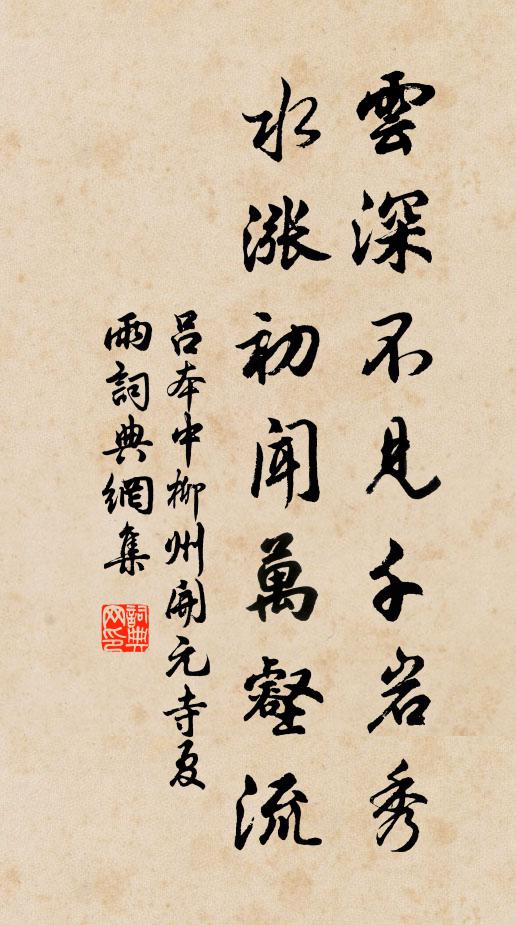 雲深不見千岩秀
水漲初聞萬壑流
呂本中柳州開元寺夏
雨詞典網集
詞典
网印